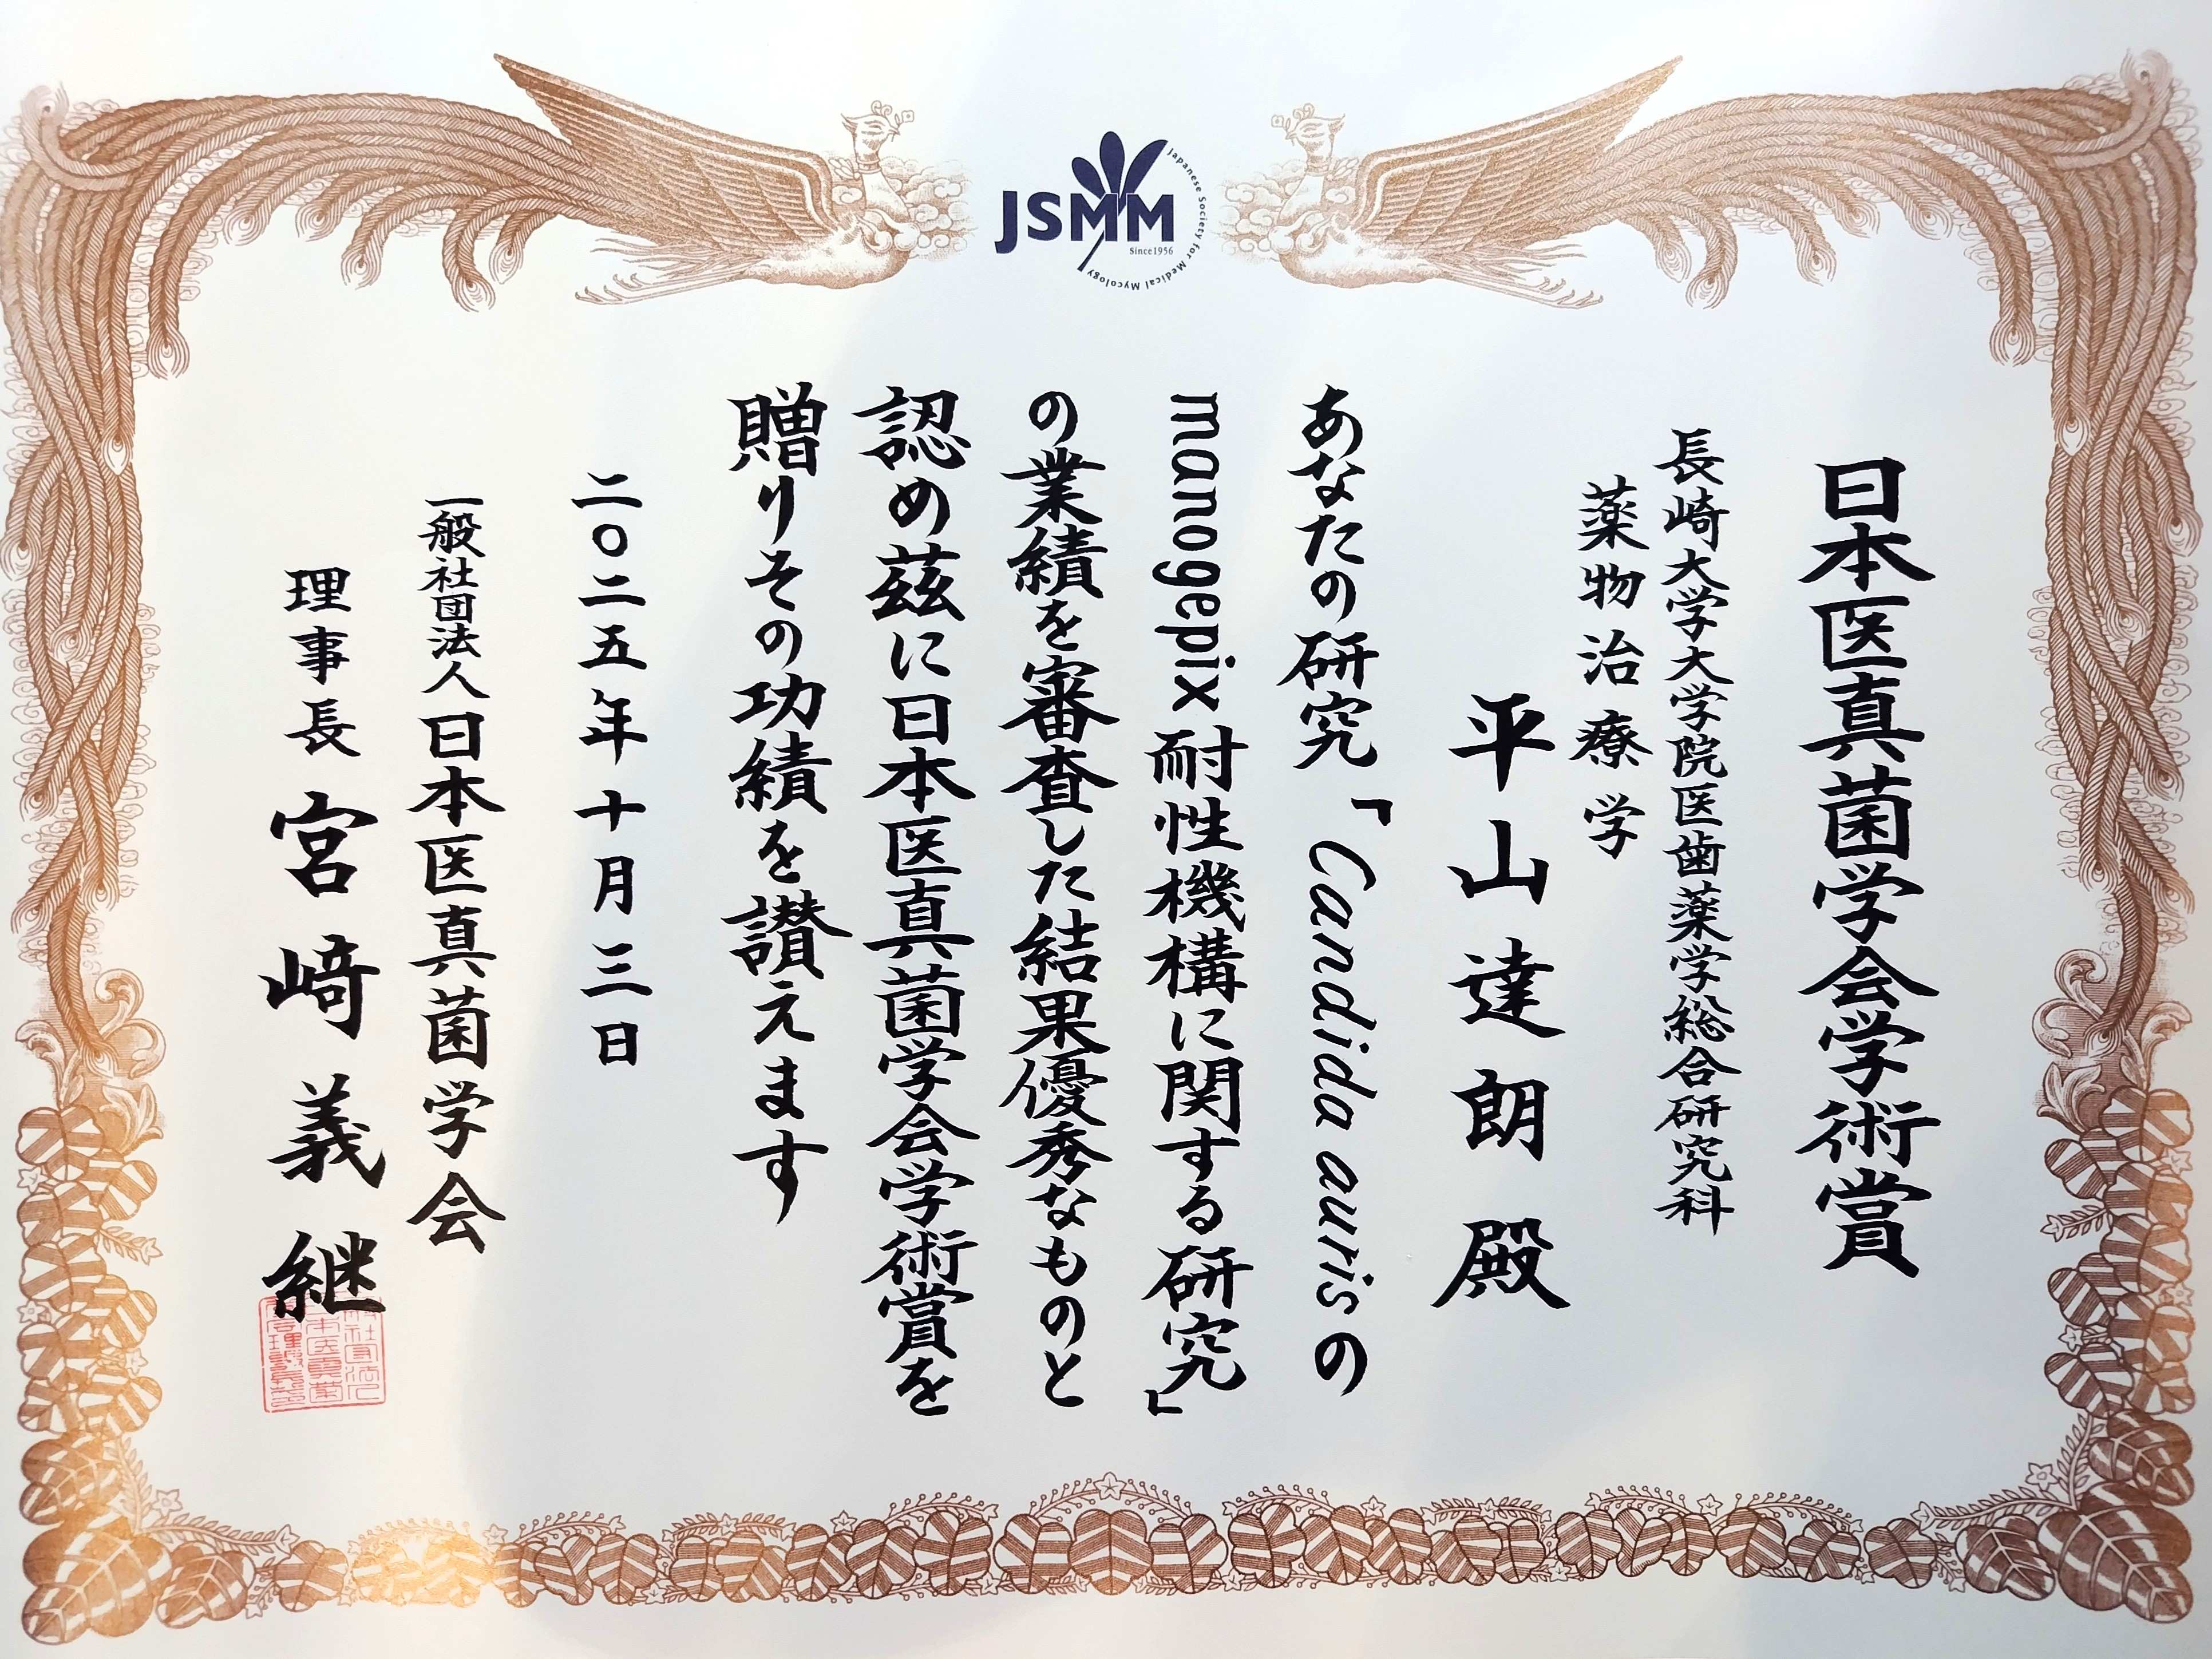 JSMM
Since1956
Japanese Society for Medical Mycology
日本医真菌学会学術賞
長崎大学大学院医歯薬学総合研究科
薬物治療学
平山達朗殿
あなたの研究「Candida aurisの
manogepix耐性機構に関する研究」
の業績を審査した結果優秀なものと
認め茲に日本医真菌学会学術賞を
贈りその功績を讃えます
二〇二五年十月三日
一般社団法人日本医真菌学会
理事長 宮﨑義継